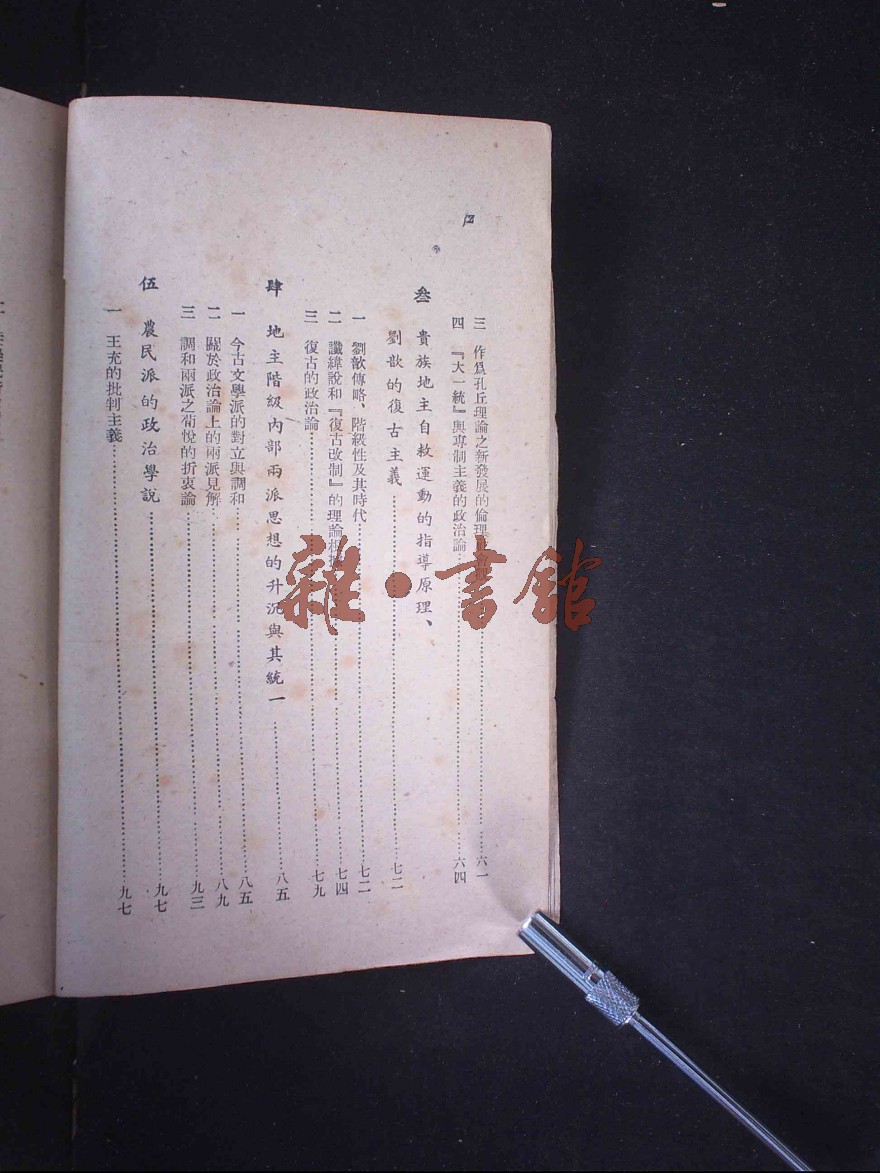 三 作爲孔丘理論之新發展的倫理…六一
四 『大一統』與專制主義的政治論…六四
叁 貴族地主自救運動的指導原理、
劉歆的復古主義…七二
一 劉歆傳略、階級性及其時代…七二
二 讖緯說和『復古改制』的理論根據…七四
三 復古的政治論…七九
肆 地主階級內部兩派思想的升沉與其統一…八五
一 今古文學派的對立與調和…八五
二 關於政治論上的兩派見解…八九
三 調和兩派之荀悅的折衷論…九三
伍 農民派的政治學說…九七
一 王充的批判主義…九七
雜·書館